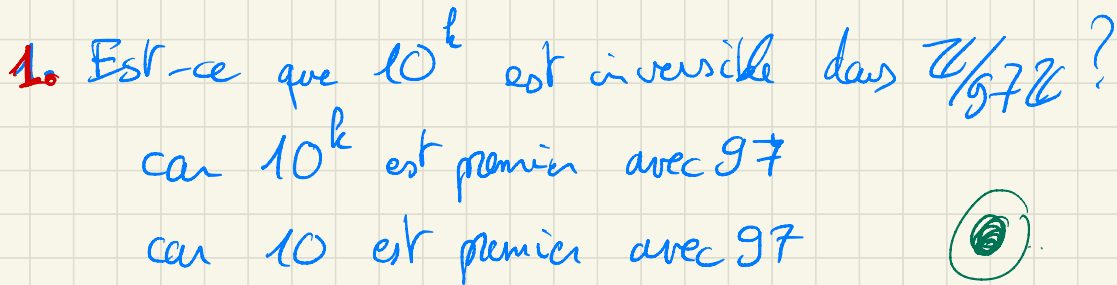 1. Est-ce que 10^k est inversible dans ℤ/97ℤ ?
car 10^k est premier avec 97
car 10 est premier avec 97